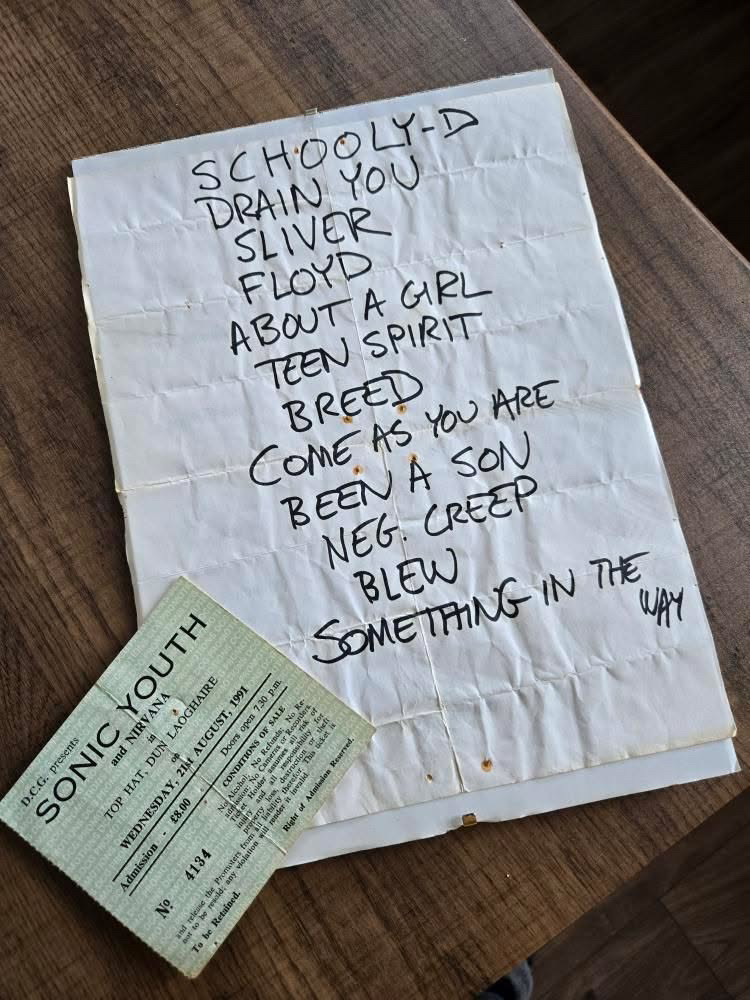 SCHOOLY-D
DRAIN YOU
SLIVER
FLOYD
ABOUT A GIRL
TEEN SPIRIT
BREED
COME AS YOU ARE
BEEN A SON
NEG. CREEP
BLEW
SOMETHING IN THE
WAY
D.C.G. presents
SONIC YOUTH
and NIRVANA
in
TOP HAT, DUN LAOGHAIRE
on
WEDNESDAY, 21st AUGUST, 1991
Admission - £8.00
Doors open 7.30 p.m.
Nº 4134
CONDITIONS OF SALE
No Alcohol, No Refunds, No Re-
admission, No Cameras or Recorders
Ticket Holder assumes all risk of
injury and all responsibility for
property loss, destruction or theft
and release the Promoters from all liability therefor. This ticket is
not to be resold, any violation will render it invalid.
To be Retained.
Right of Admission Reserved.